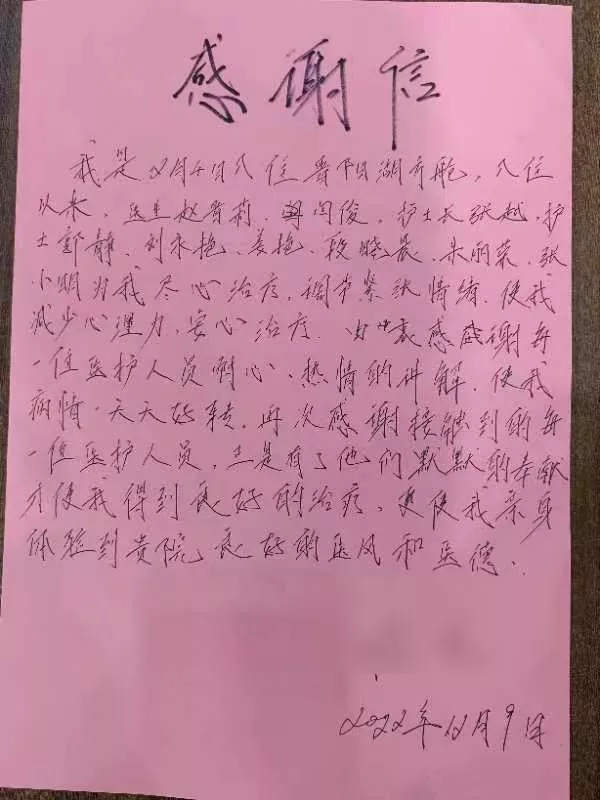 感谢信
我是12月4日入住贵阳湖方舱，入住
以来，医生赵省莉、闫俊，护士长张越、护
士郭静、刘永艳、姜艳、段晓晨、朱丽荣、张
小明为我尽心治疗，调节紧张情绪，使我
减少心理力，安心治疗．由衷感感谢每
一位医护人员耐心、热情的讲解，使我
病情一天天好转，再次感谢接触到的每
一位医护人员，正是有了他们默默的奉献
才使我得到良好的治疗，更使我亲身
体验到贵院良好的医风和医德．
2022年12月9日